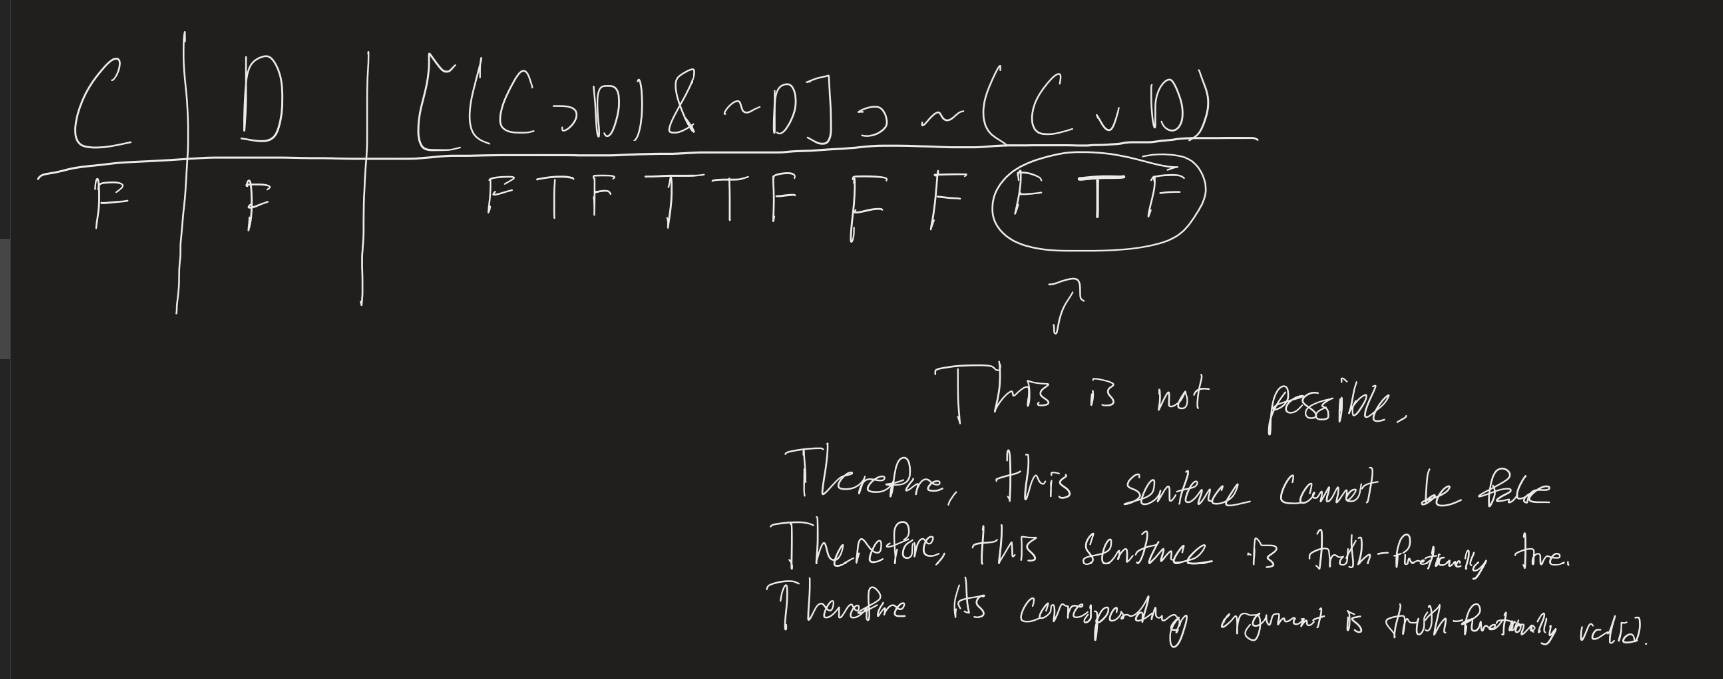 C D [(C⊃D) & ~D] ⊃ ~(C v D)
F F F T F T T F F F F T F
This is not possible.
Therefore, this sentence cannot be false
Therefore, this sentence is truth-functionally true.
Therefore its corresponding argument is truth-functionally valid.